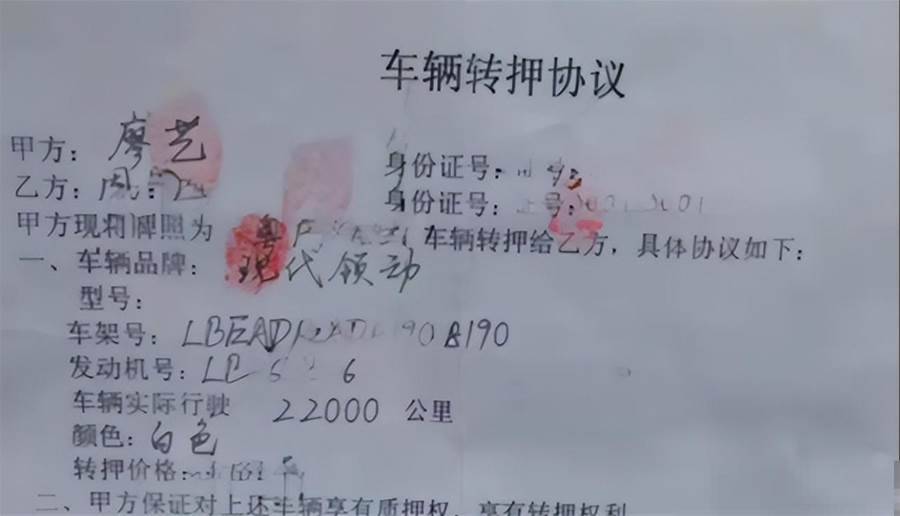 车辆转押协议
甲方：廖艺
身份证号：
乙方：周
身份证号：
甲方现将牌照为 粤 车辆转押给乙方，具体协议如下：
一、车辆品牌：现代领动
型号：
车架号：LBEAD 190B190
发动机号：L 6
车辆实际行驶 22000 公里
颜色：白色
转押价格：
二、甲方保证对上述车辆享有质押权，享有转押权利